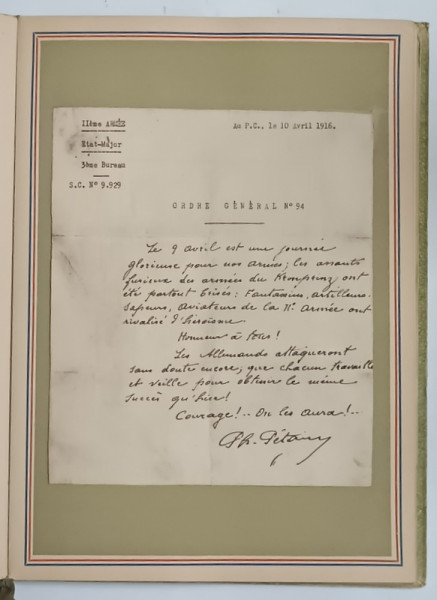 IIème ARMÉE
Au P.C., le 10 Avril 1916.
Etat-Major
3ème Bureau
S.C. N° 9.929
ORDRE GÉNÉRAL N° 94
Le 9 avril est une journée
glorieuse pour nos armes; les assauts
furieux des armées du Kronprinz ont
été partout brisés: Fantassins, artilleurs
Sapeurs, aviateurs de la IIe Armée ont
rivalisé d'héroïsme.
Honneur à tous!
Les Allemands attaqueront
sans doute encore, que chacun travaille
et veille pour obtenir le même
succès qu'hier!
Courage!.. On les aura!..
Ph. Pétain